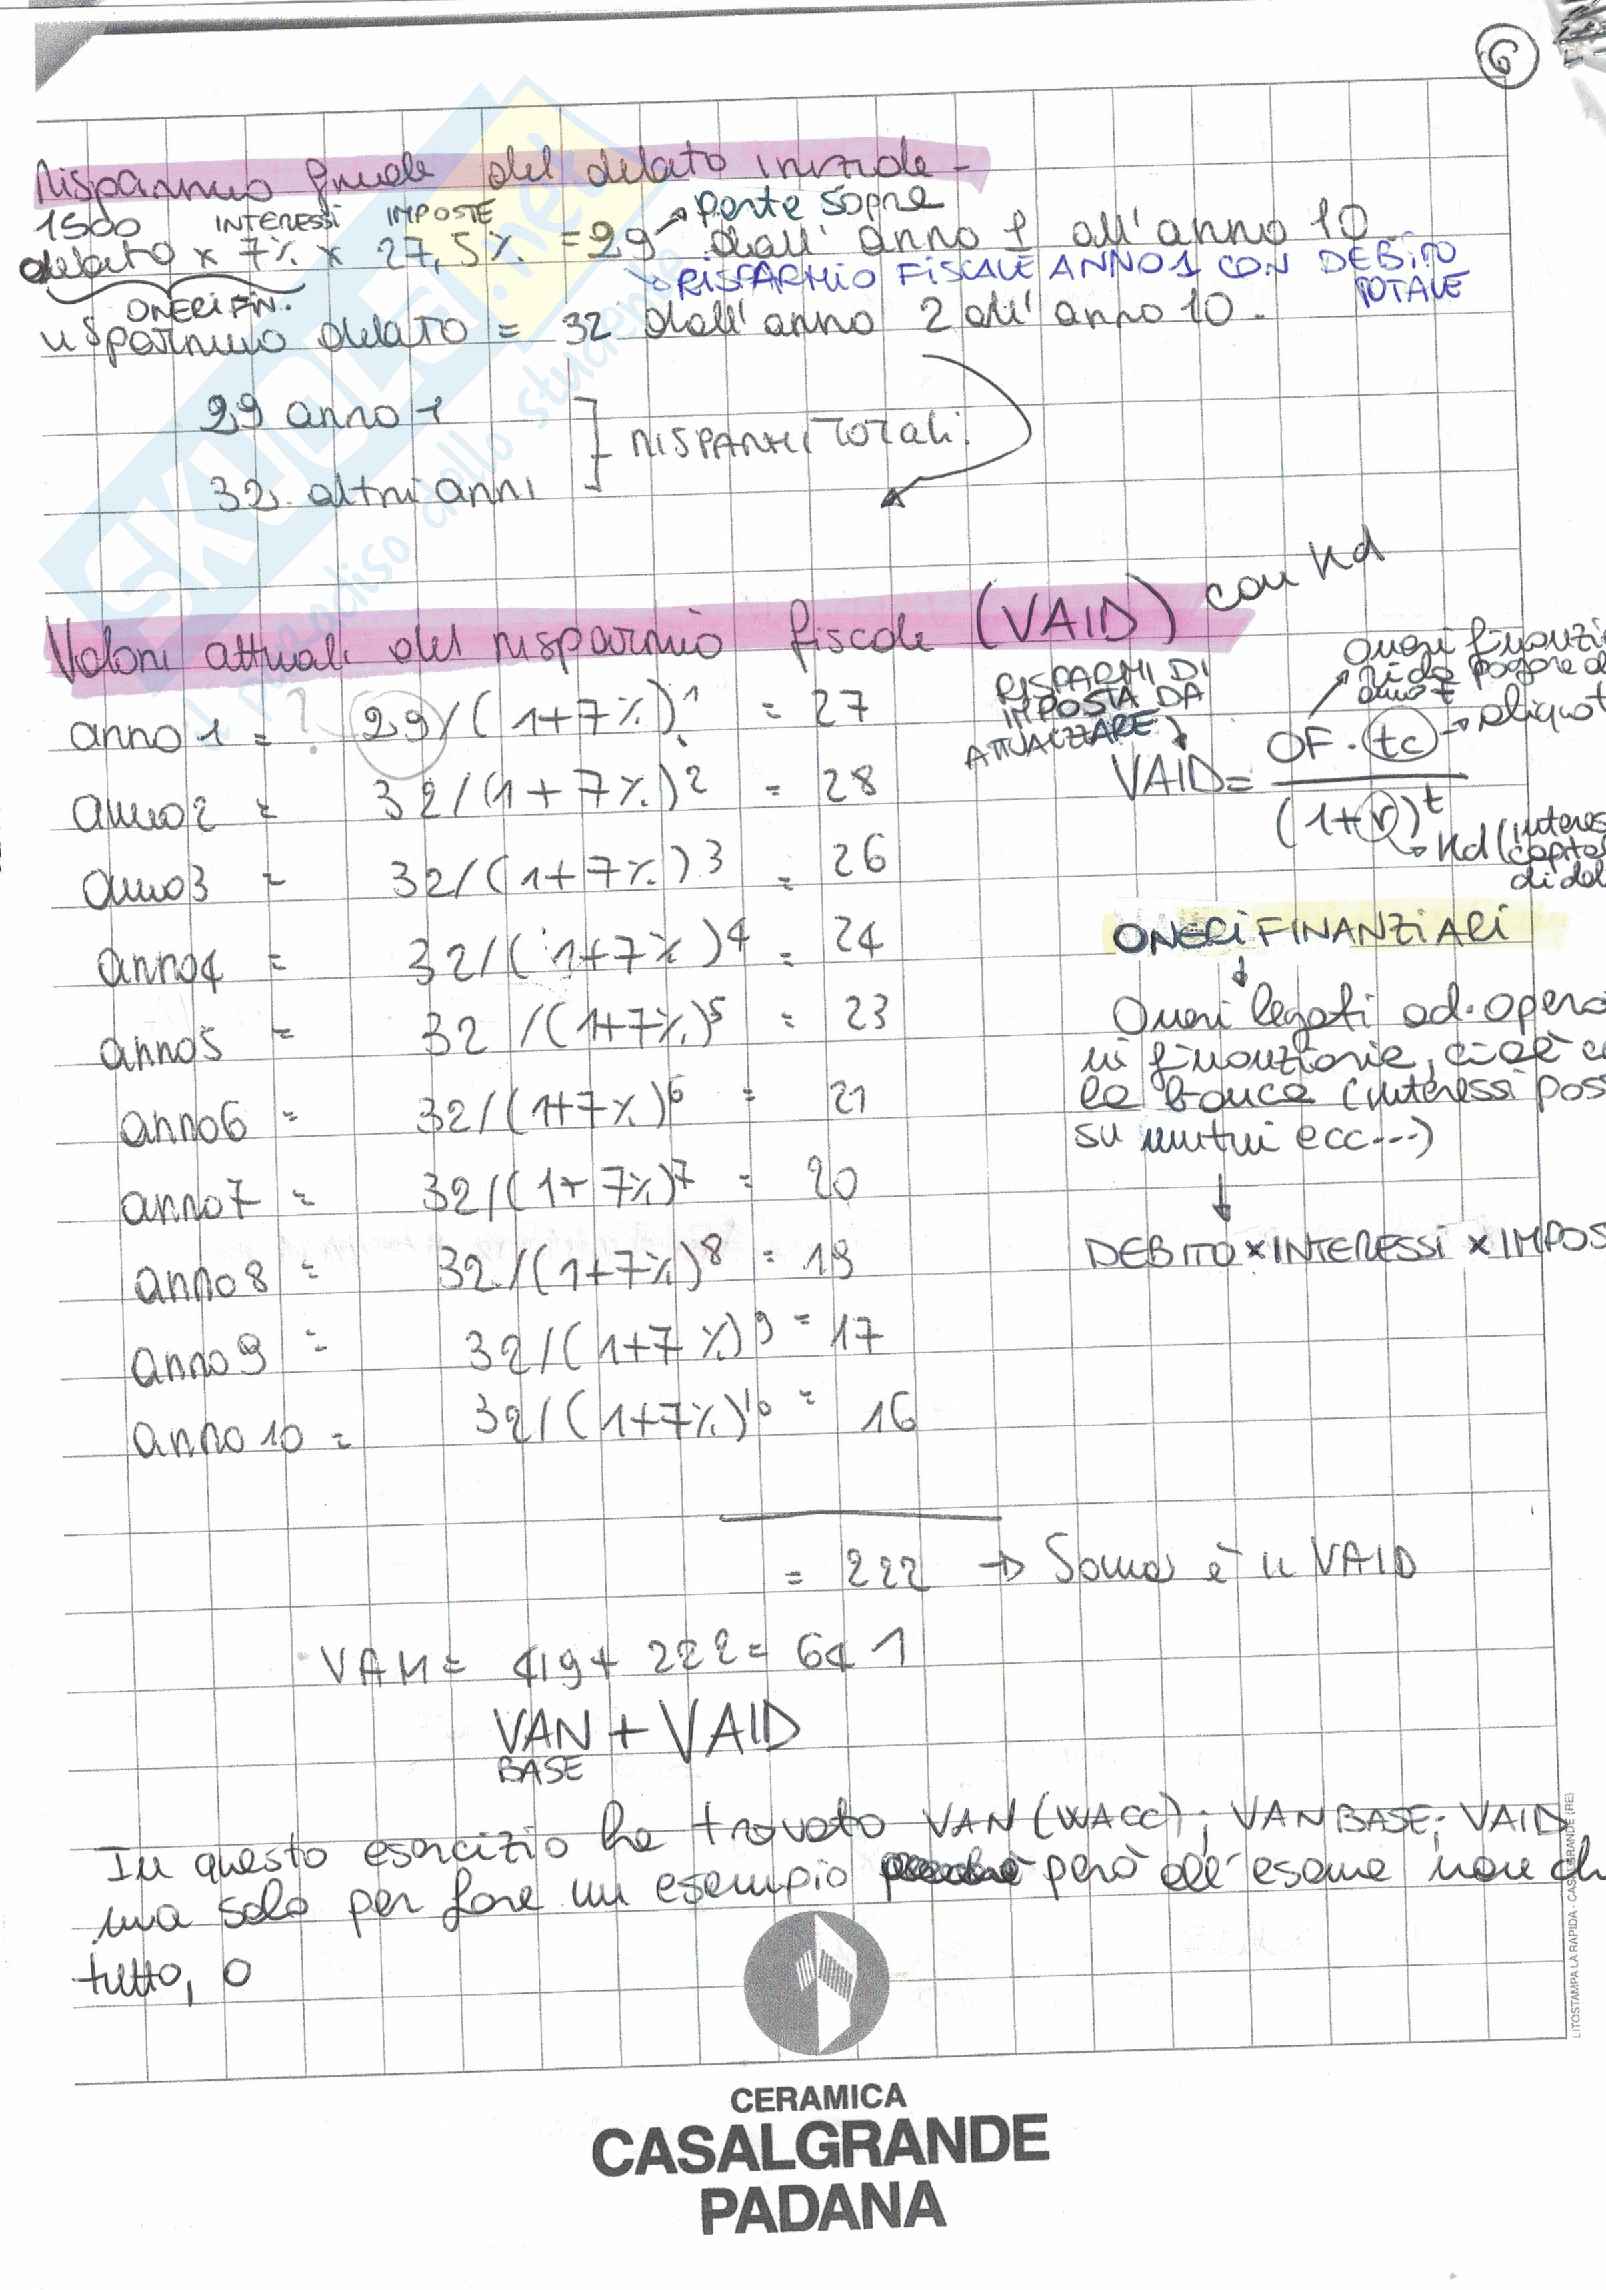 6
Risparmio fiscale del debito iniziale -
1500 INTERESSI IMPOSTE parte sopra
debito x 7% x 27,5% = 29 dall'anno 1 all'anno 10
RISPARMIO FISCALE ANNO 1 CON DEBITO TOTALE
ONERI FIN.
risparmio debito = 32 dall'anno 2 all'anno 10.
29 anno 1
RISPARMI TOTALI.
32 altri anni
Valori attuali del risparmio fiscale (VAID) con Kd
anno 1 = ? 29/(1+7%)^1 = 27
anno 2 = 32/(1+7%)^2 = 28
anno 3 = 32/(1+7%)^3 = 26
anno 4 = 32/(1+7%)^4 = 24
anno 5 = 32/(1+7%)^5 = 23
anno 6 = 32/(1+7%)^6 = 21
anno 7 = 32/(1+7%)^7 = 20
anno 8 = 32/(1+7%)^8 = 19
anno 9 = 32/(1+7%)^9 = 17
anno 10 = 32/(1+7%)^10 = 16
RISPARMI DI
IMPOSTA DA
ATTUALIZZARE
oneri finanzi
da pagare
VAID = OF · tc / (1+r)^t
aliquot
Kd (interes
capita
di de
ONERI FINANZIARI
Oneri legati ad opera
ni finanziarie, cioè c
la banca (interessi pass
su mutui ecc...)
DEBITO x INTERESSI x IMPOS
= 222 → Somma è il VAID
VAM = 419 + 222 = 641
VAN + VAID
BASE
In questo esercizio ha trovato VAN (WACC); VAN BASE; VAID
ma solo per fare un esempio però all'esame non ch
tutto, o
CERAMICA
CASALGRANDE
PADANA
LITOSTAMPA LA RAPIDA - CASALGRANDE (RE)
SKUOLA.net
il paradiso dello studente